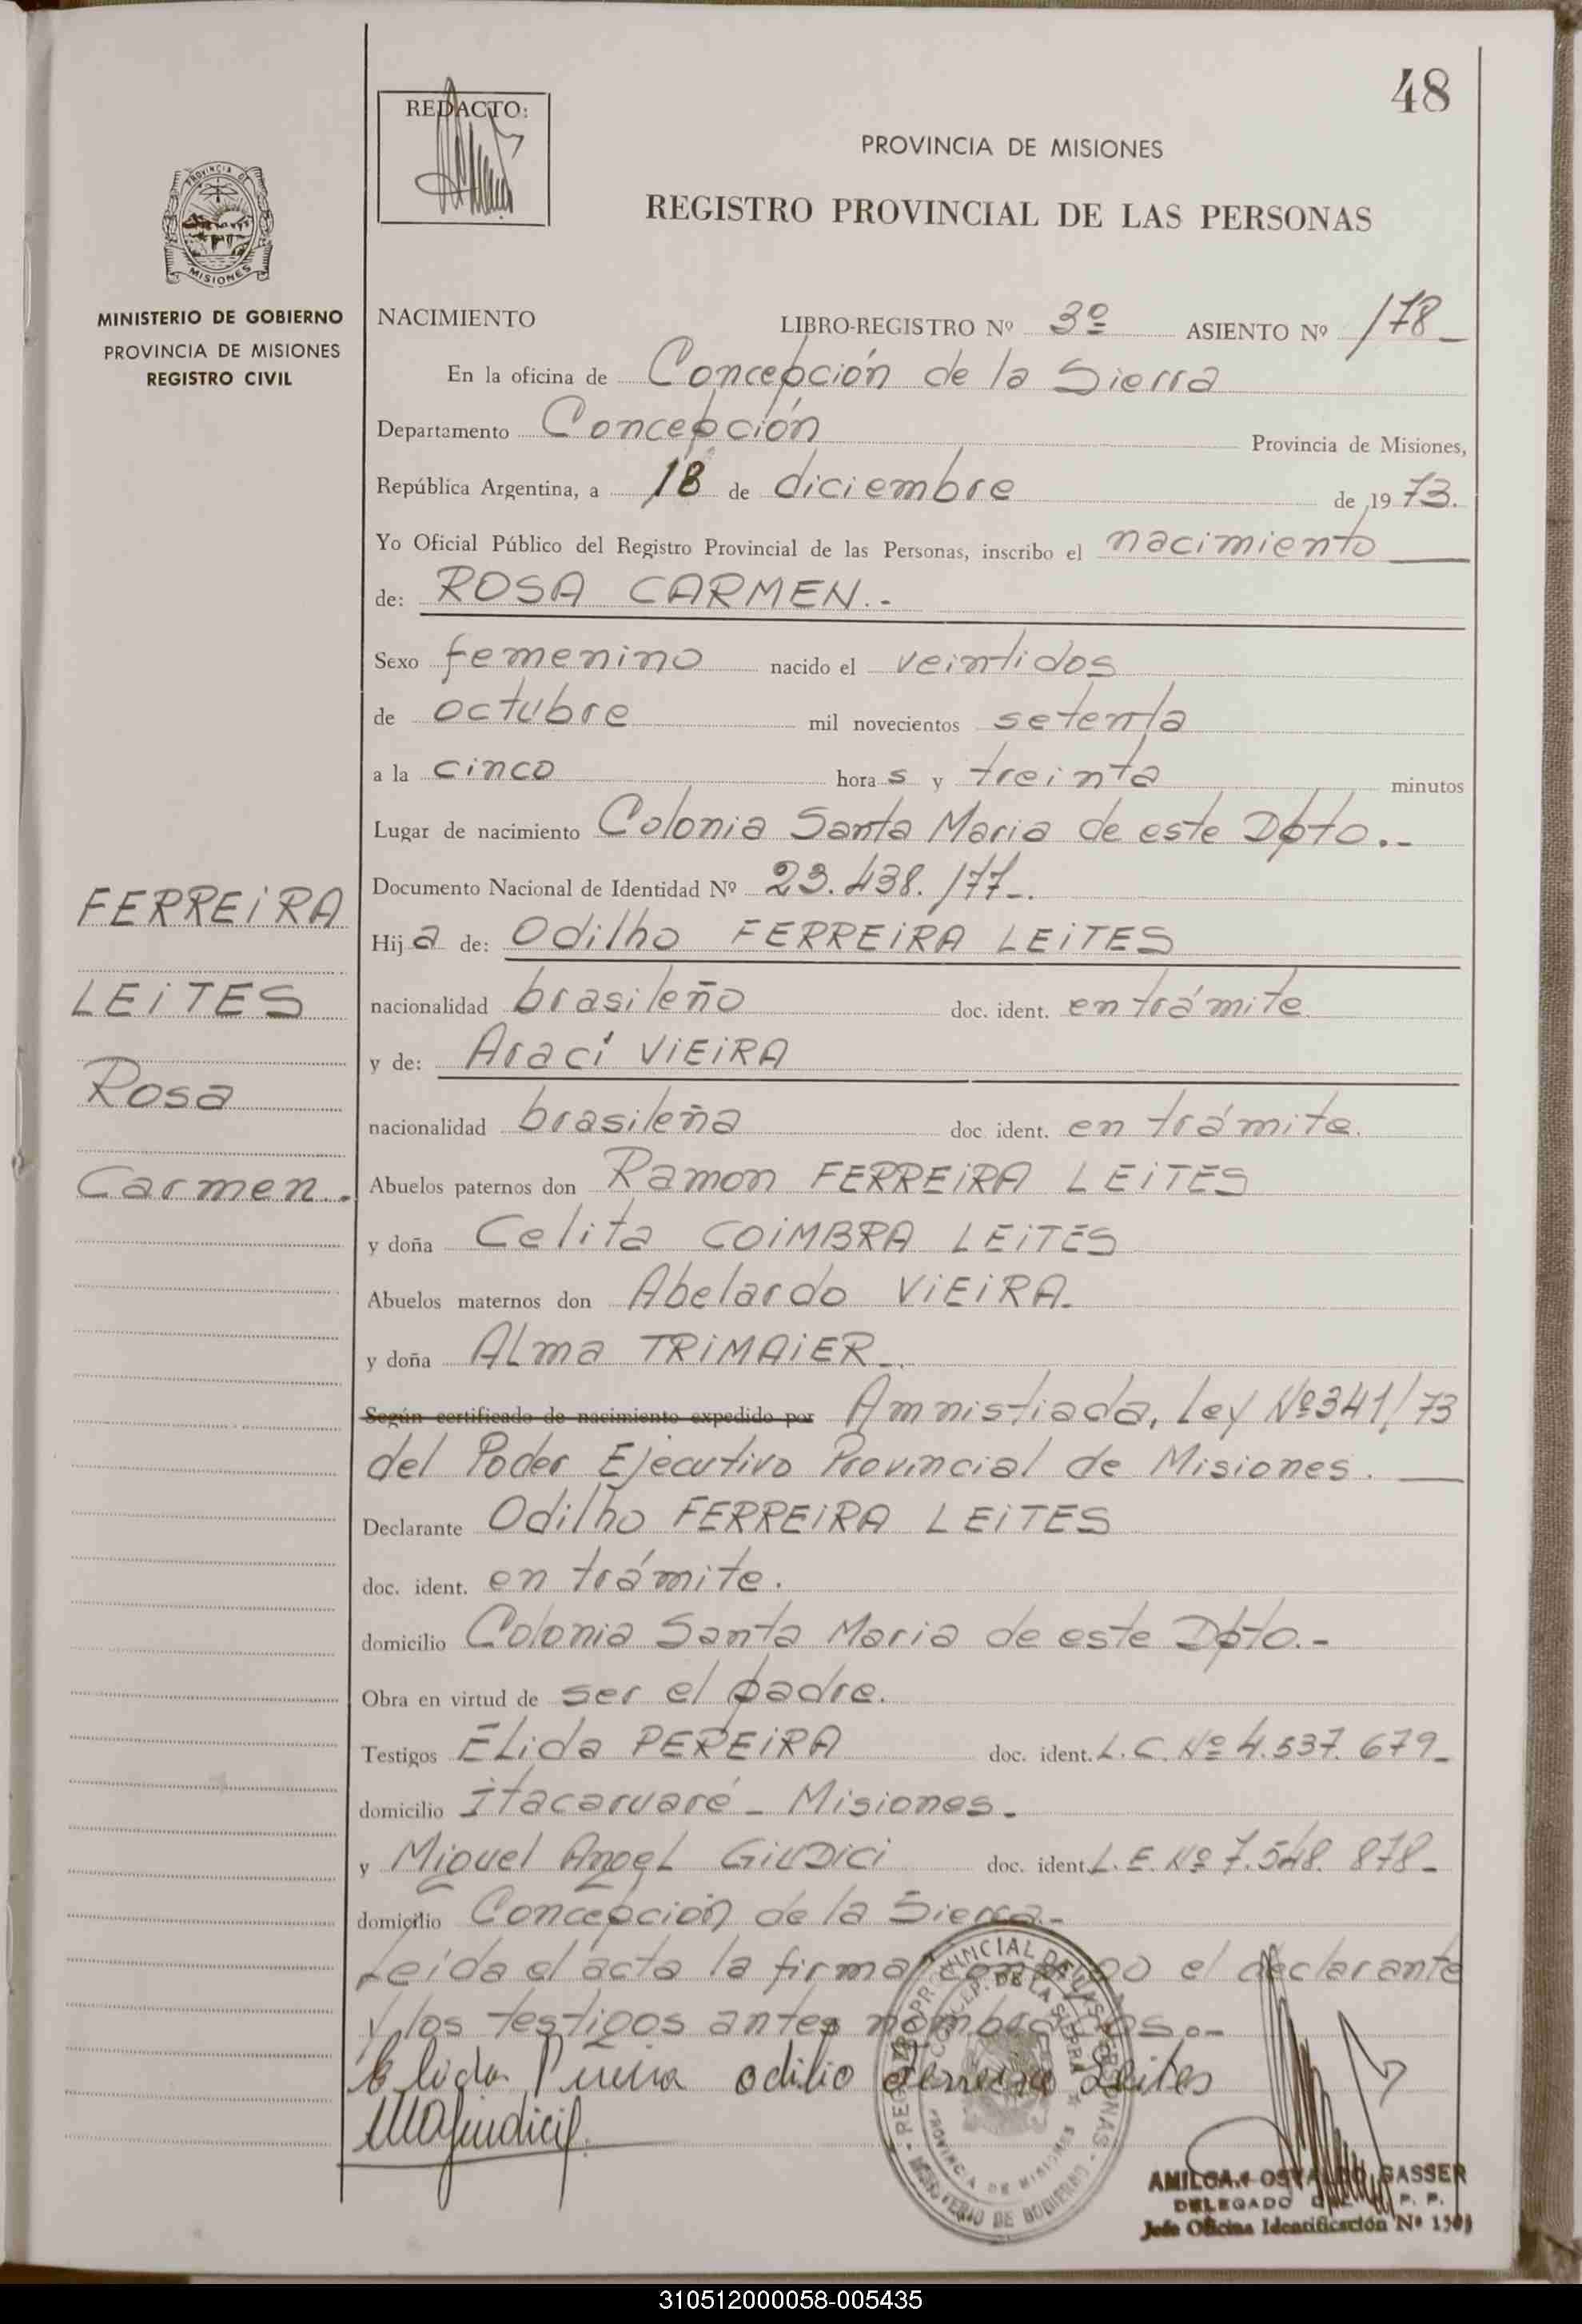 48
REDACTO:
PROVINCIA DE MISIONES
REGISTRO PROVINCIAL DE LAS PERSONAS
PROVINCIA DE
MISIONES
MINISTERIO DE GOBIERNO
PROVINCIA DE MISIONES
REGISTRO CIVIL
NACIMIENTO LIBRO-REGISTRO Nº 3º ASIENTO Nº 178_
En la oficina de Concepción de la Sierra
Departamento Concepción Provincia de Misiones,
República Argentina, a 18 de diciembre de 1973.
Yo Oficial Público del Registro Provincial de las Personas, inscribo el nacimiento
de: ROSA CARMEN.-
Sexo femenino nacido el veintidos
de octubre mil novecientos setenta
a la cinco horas y treinta minutos
Lugar de nacimiento Colonia Santa Maria de este Dpto.-
Documento Nacional de Identidad Nº 23.438.177_.
FERREIRA
LEITES
Rosa
Carmen.
Hija de: Odilho FERREIRA LEITES
nacionalidad brasileño doc. ident. en trámite
y de: Arací VIEIRA
nacionalidad brasileña doc. ident. en trámite.
Abuelos paternos don Ramon FERREIRA LEITES
y doña Celita COIMBRA LEITES
Abuelos maternos don Abelardo VIEIRA_
y doña ALma TRIMAIER_.
Según certificado de nacimiento expedido por Amnistiada, Ley Nº341/73
del Poder Ejecutivo Provincial de Misiones.
Declarante Odilho FERREIRA LEITES
doc. ident. en trámite.
domicilio Colonia Santa Maria de este Dpto.-
Obra en virtud de ser el padre.
Testigos ELida PEREIRA doc. ident. L.C. Nº 4.537.679_
domicilio Itacaruaré - Misiones.
y Miguel AngeL GIUDICI doc. ident. L.E. Nº 7.548.878_
domicilio Concepción de la Sierra-
Leída el acta la firman conmigo el declarante
y los testigos antes nombrados.-
Elida Pereira odilio Ferreira Leites
MAGiudici
REGISTRO PROVINCIAL DE LAS PERSONAS
CONCEP. DE LA SIERRA
PROVINCIA DE MISIONES
MINISTERIO DE GOBIERNO
OSVALDO GASSER
DELEGADO P. P.
Jefe Oficina Identificación Nº
310512000058-005435